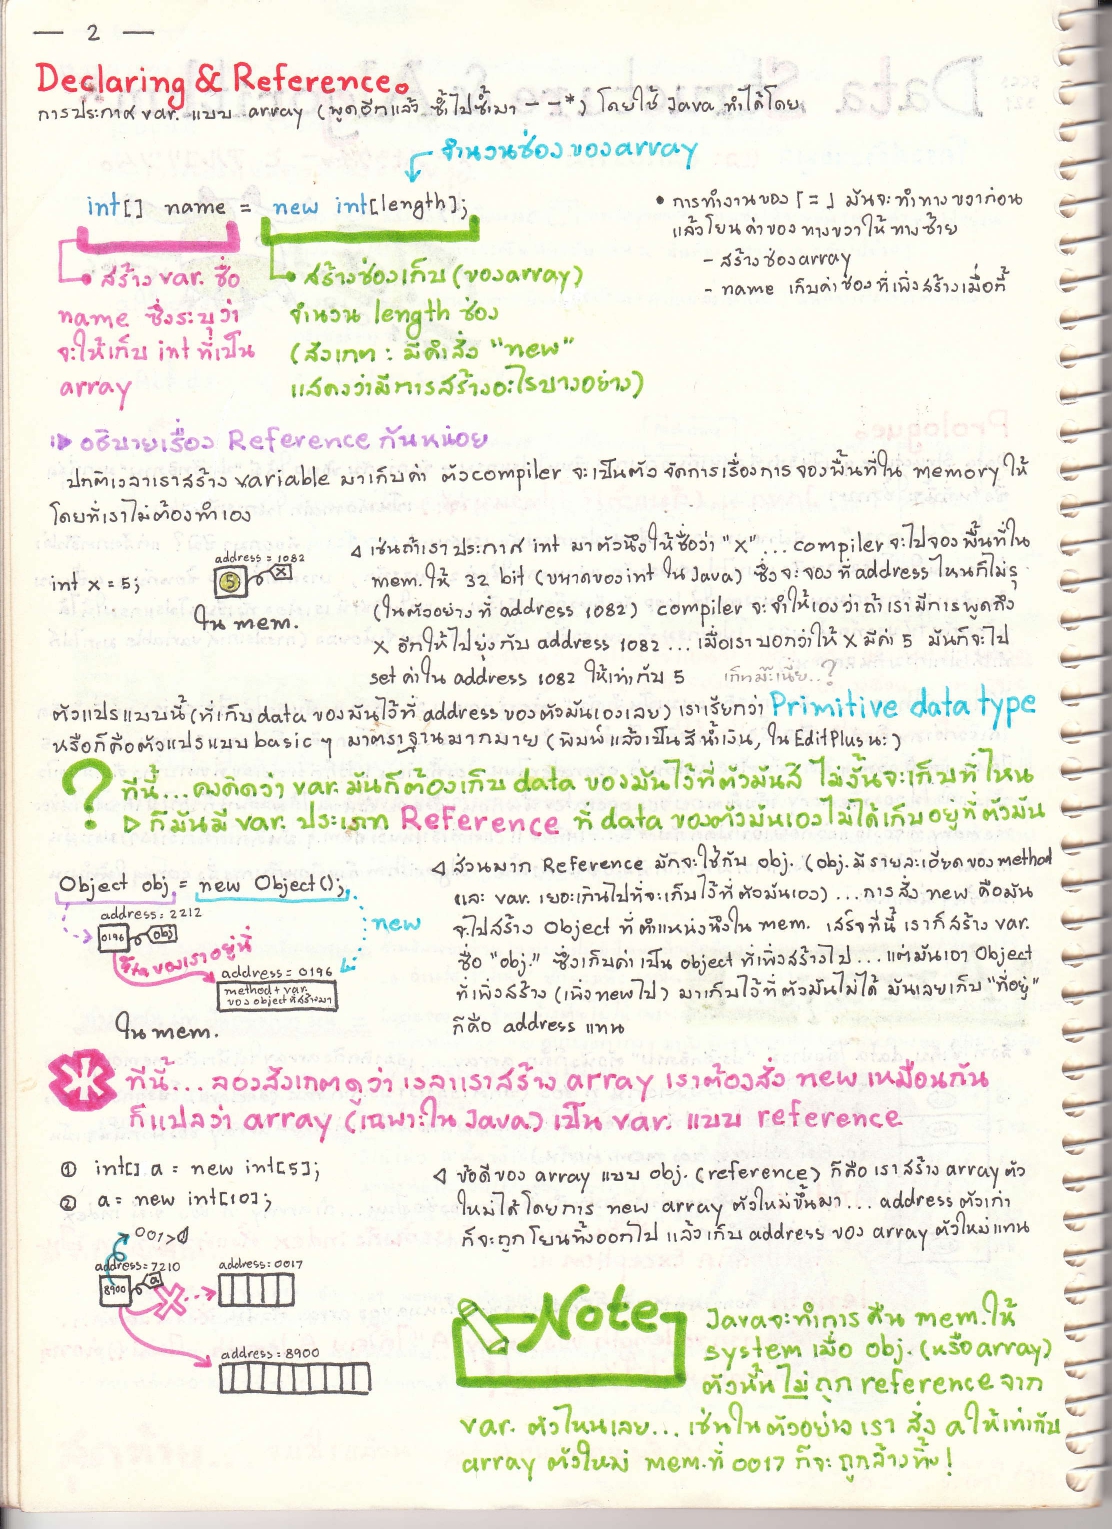 — 2 —
Declaring & Reference.
การประกาศ var. แบบ array (พูดอีกแล้ว ซ้ำไปซ้ำมา - -*) โดยใช้ Java ทำได้โดย
จำนวนช่องของ array
int[] name = new int[length];
สร้าง var. ชื่อ
name ซึ่งระบุว่า
จะให้เก็บ int ที่เป็น
array
สร้างช่องเก็บ (ของ array)
จำนวน length ช่อง
(สังเกต : มีคำสั่ง "new"
แสดงว่ามีการสร้างอะไรบางอย่าง)
• การทำงานของ 「=」 มันจะทำทางขวาก่อน
แล้วโยนค่าของทางขวาให้ทางซ้าย
- สร้างช่อง array
- name เก็บค่าช่องที่เพิ่งสร้างเมื่อกี้
อธิบายเรื่อง Reference กันหน่อย
ปกติเวลาเราสร้าง variable มาเก็บค่า ตัว compiler จะเป็นตัวจัดการเรื่องการจองพื้นที่ใน memory ให้
โดยที่เราไม่ต้องทำเอง
int x = 5;
address = 1082
5
x
ใน mem.
◁ เช่นถ้าเราประกาศ int มาตัวนึงให้ชื่อว่า "x"... compiler จะไปจองพื้นที่ใน
mem. ให้ 32 bit (ขนาดของ int ใน Java) ซึ่งจะจองที่ address ไหนก็ไม่รู้
(ในตัวอย่าง ที่ address 1082) compiler จะจำให้เองว่าถ้าเรามีการพูดถึง
x อีกให้ไปยุ่งกับ address 1082 ... เมื่อเราบอกว่าให้ x มีค่า 5 มันก็จะไป
set ค่าใน address 1082 ให้เท่ากับ 5 เก็ทมั๊ยเนี่ย..?
ตัวแปรแบบนี้ (ที่เก็บ data ของมันไว้ที่ address ของตัวมันเองเลย) เราเรียกว่า Primitive data type
หรือก็คือตัวแปรแบบ basic ๆ มาตราฐานมากมาย (พิมพ์แล้วเป็นสีน้ำเงิน, ใน EditPlus นะ)
? ทีนี้... คงคิดว่า var. มันก็ต้องเก็บ data ของมันไว้ที่ตัวมันสิ ไม่งั้นจะเก็บที่ไหน
▷ ก็มันมี var. ประเภท Reference ที่ data ของตัวมันเองไม่ได้เก็บอยู่ที่ตัวมัน
Object obj = new Object();
address = 2212
0196
obj
new
ของเราอยู่นี่
address = 0196
method + var.
ของ object ที่สร้างมา
ใน mem.
◁ ส่วนมาก Reference มักจะใช้กับ obj. (obj. มีรายละเอียดของ method
และ var. เยอะเกินไปที่จะเก็บไว้ที่ตัวมันเอง) ... การสั่ง new คือมัน
จะไปสร้าง Object ที่ตำแหน่งนึงใน mem. เสร็จที่นี้ เราก็สร้าง var.
ชื่อ "obj." ซึ่งเก็บค่าเป็น object ที่เพิ่งสร้างไป ... แต่มันเอา Object
ที่เพิ่งสร้าง (เพิ่ง new ไป) มาเก็บไว้ที่ตัวมันไม่ได้ มันเลยเก็บ "ที่อยู่"
ก็คือ address แทน
ทีนี้... ลองสังเกตดูว่า เวลาเราสร้าง array เราต้องสั่ง new เหมือนกัน
ก็แปลว่า array (เฉพาะใน Java) เป็น var. แบบ reference
① int[] a = new int[5];
② a = new int[10];
0017
address = 7210
8900
a
address = 0017
address = 8900
◁ ข้อดีของ array แบบ obj. (reference) ก็คือ เราสร้าง array ตัว
ใหม่ได้โดยการ new array ตัวใหม่ขึ้นมา ... address ตัวเก่า
ก็จะถูกโยนทิ้งออกไป แล้วเก็บ address ของ array ตัวใหม่แทน
Note
Java จะทำการคืน mem. ให้
system เมื่อ obj. (หรือ array)
ตัวนั้น ไม่ถูก reference จาก
var. ตัวไหนเลย... เช่นในตัวอย่าง เรา สั่ง a ให้เท่ากับ
array ตัวใหม่ mem. ที่ 0017 ก็จะถูกล้างทิ้ง!